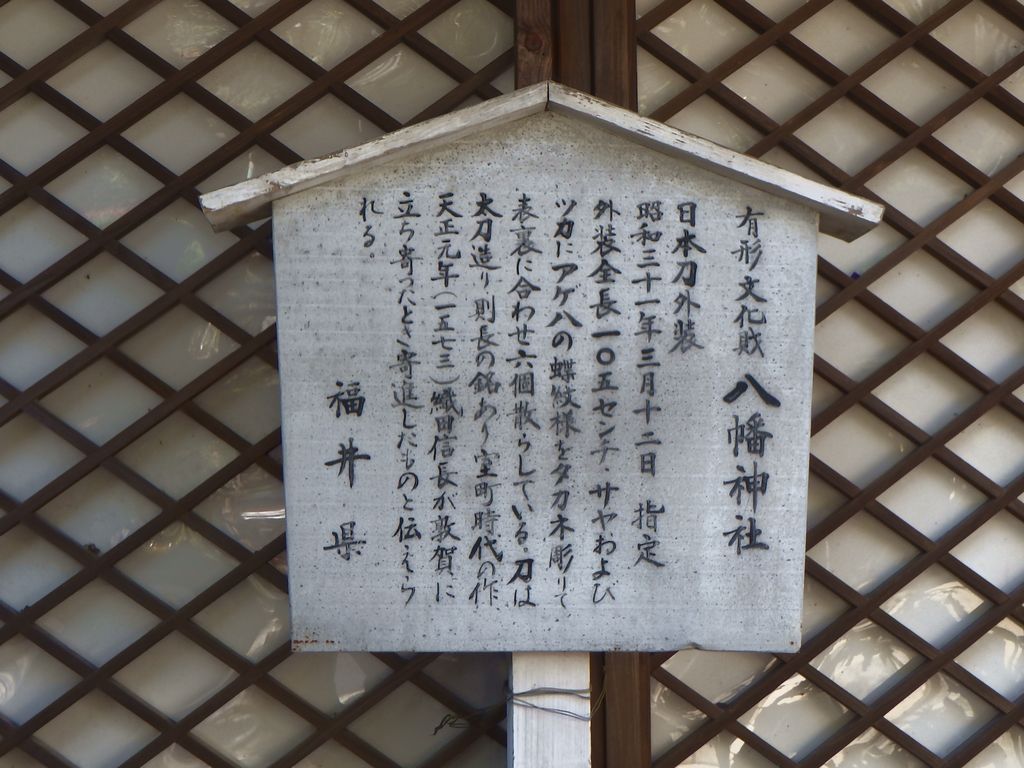 有形文化財 八幡神社
日本刀外装
昭和三十一年三月十二日 指定
外装全長一〇五センチ・サヤおよび
ツカにアゲハの蝶紋様をタカネ彫りで
表裏に合わせ六個散らしている。刀は
太刀造り則長の銘あり室町時代の作
天正元年(一五七三)織田信長が敦賀に
立ち寄ったとき寄進したものと伝えら
れる。
福井県